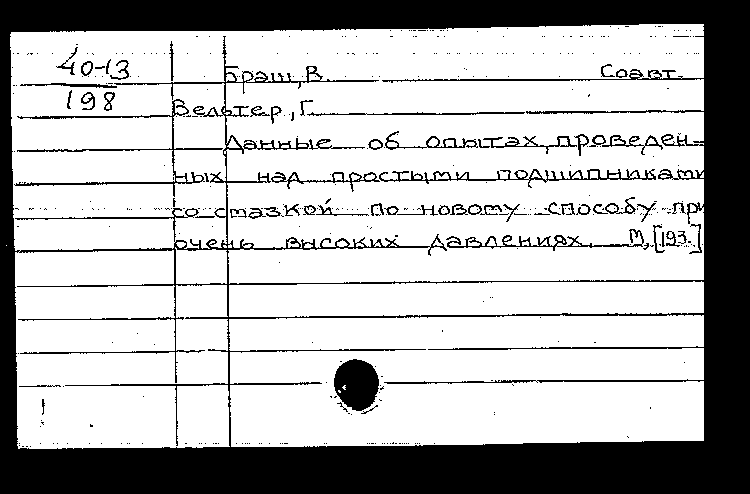 40-13
198
Браш, В. Соавт.
Вельтер, Г.
Данные об опытах, проведен-
ных над простыми подшипниками
со смазкой по новому способу при
очень высоких давлениях. М, [193.]